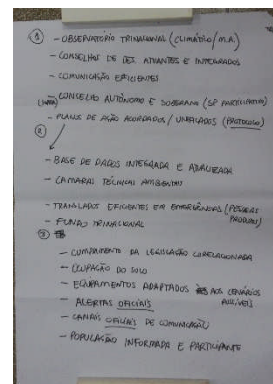 ① - OBSERVATÓRIO TRINACIONAL (CLIMÁTICO/M.A.)
- CONSELHOS DE DES. ATUANTES E INTEGRADOS
- COMUNICAÇÃO EFICIENTES
- CONSELHO AUTÔNOMO E SOBERANO (SP PARTICIPATIVO)
- PLANOS DE AÇÃO ACORDADOS / UNIFICADOS (PROTOCOLO)
②
- BASE DE DADOS INTEGRADA E ATUALIZADA
- CAMARAS TÉCNICAS AMBIENTAIS
- TRANSLADOS EFICIENTES EM EMERGÊNCIAS (PESSOAS PRODUTOS)
- FUNDO TRINACIONAL
③
- CUMPRIMENTO DA LEGISLAÇÃO CORELACIONADA
- OCUPAÇÃO DO SOLO
- EQUIPAMENTOS ADAPTADOS AOS CENÁRIOS
- ALERTAS OFICIAIS
- CANAIS OFICIAIS DE COMUNICAÇÃO
- POPULAÇÃO INFORMADA E PARTICIPANTE